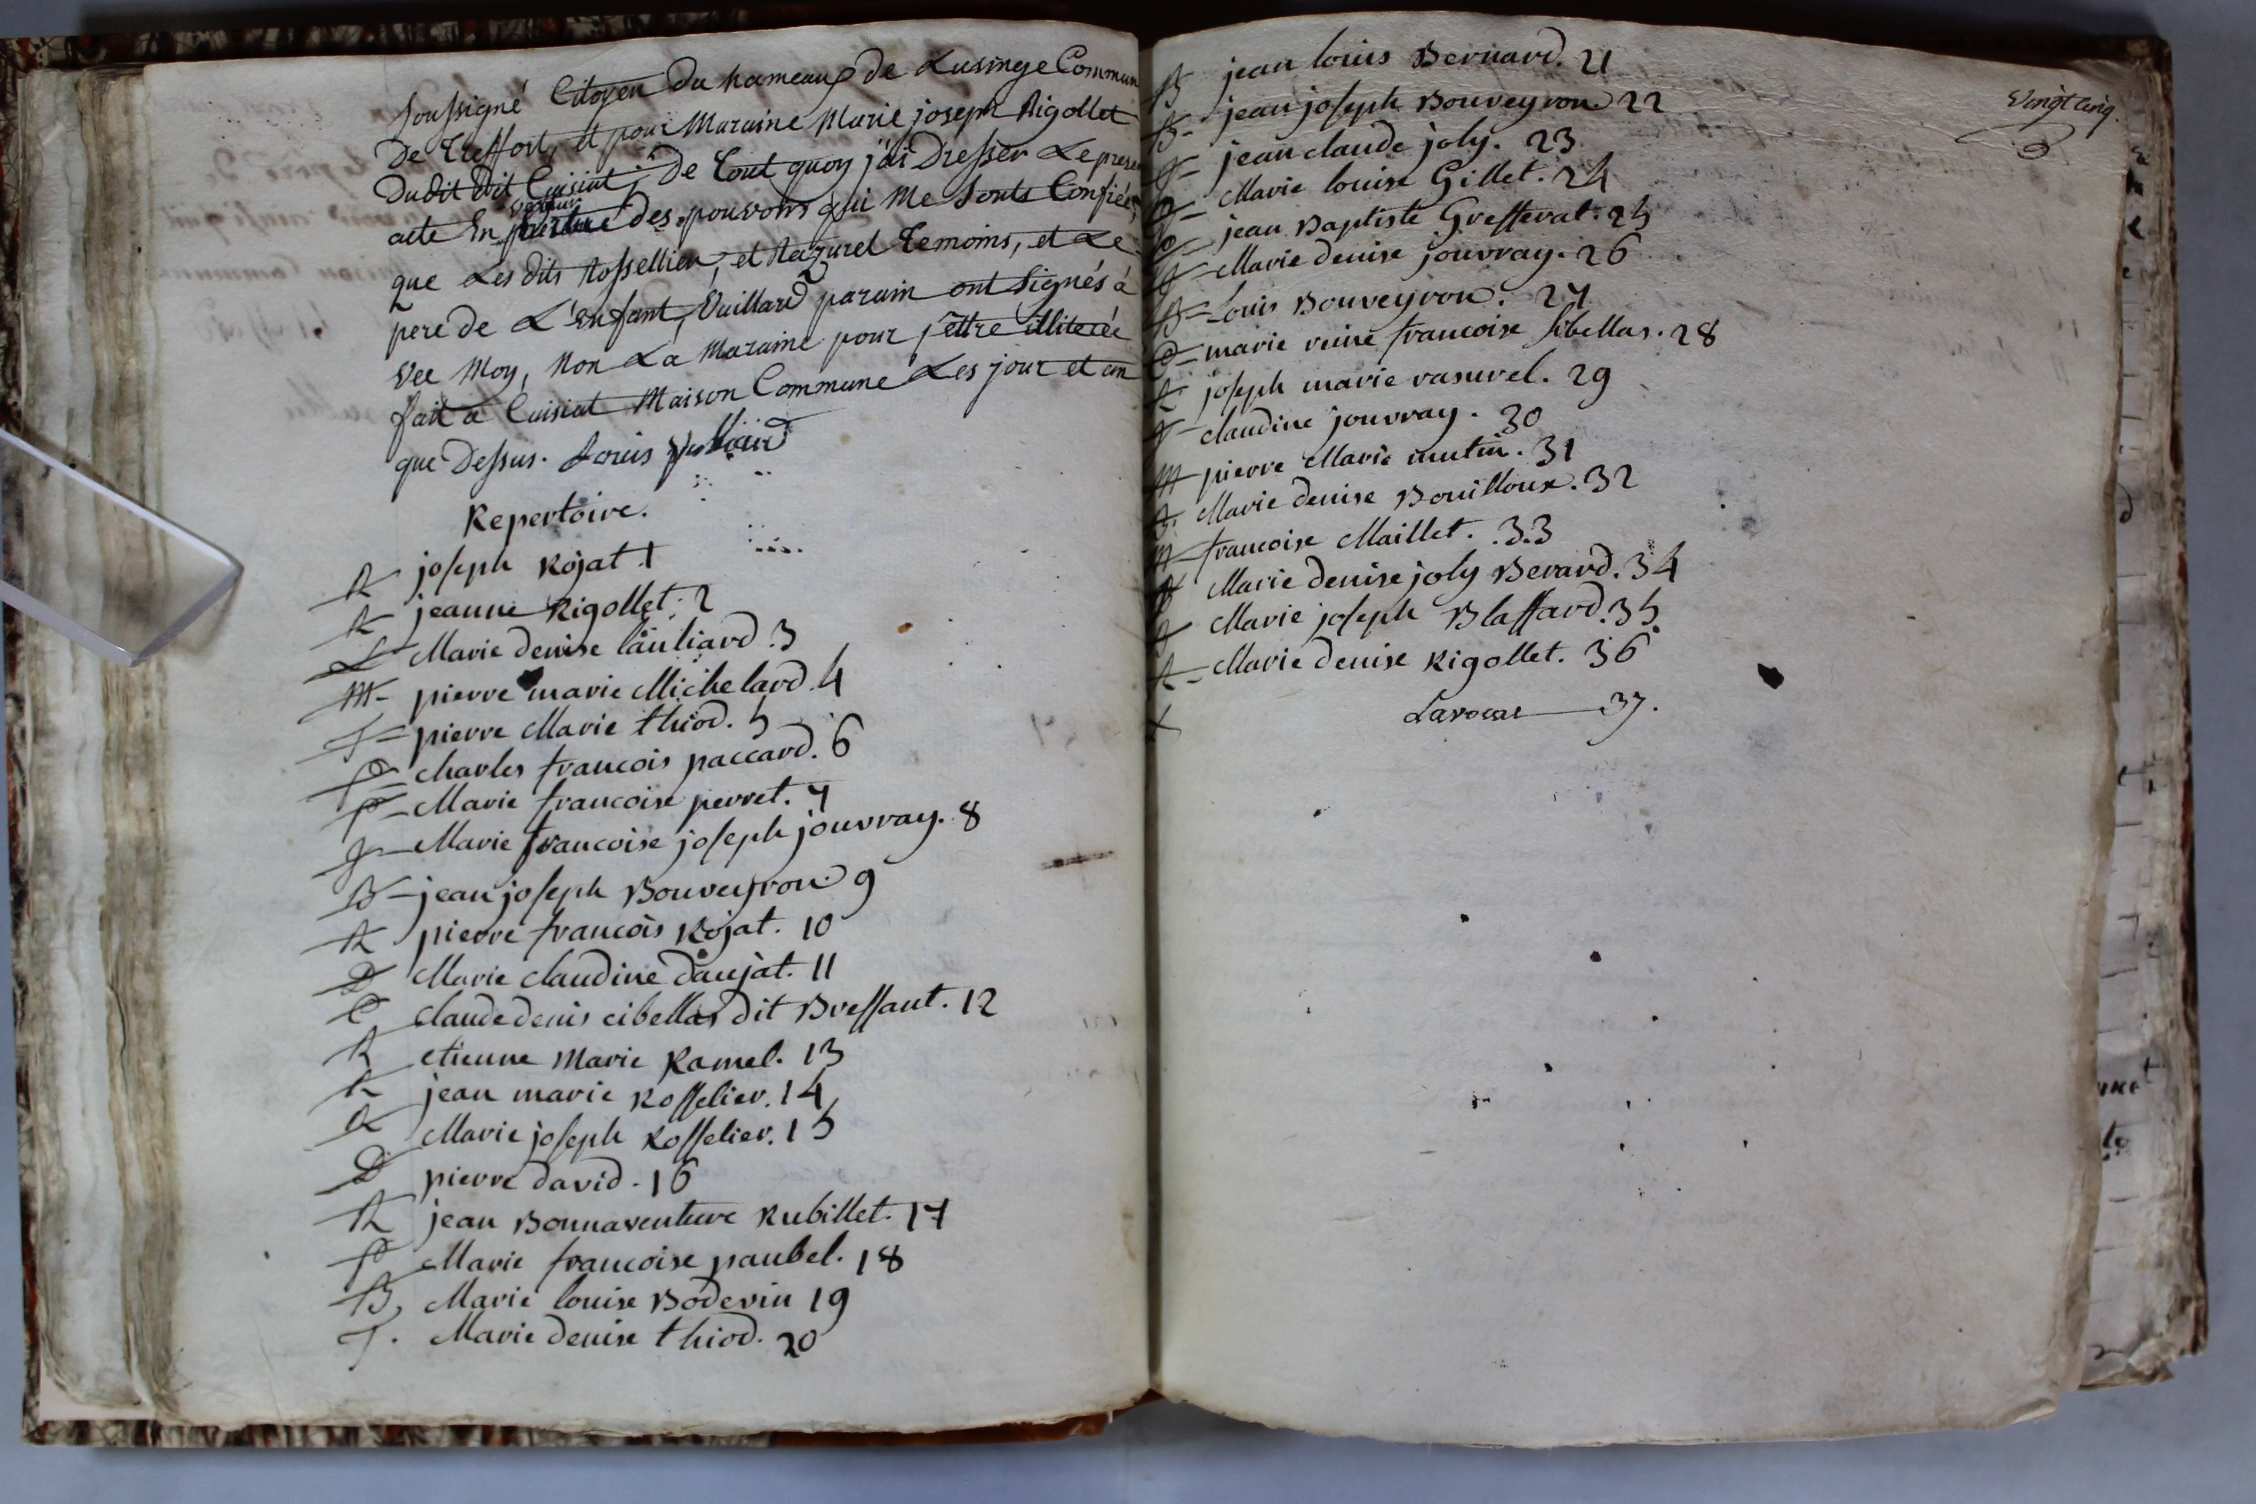 soussigné Citoyen du hameaux de Lusinge Commun
De Treffort, et pour Maraine Marie joseph Rigollet
Du dit Cuisiat; De tout quoy j'ai Dresser Le prese
acte En vertu Des pouvoirs qui Me sonts Confiées,
que Les dits Rossellier, et Razurel temoins, et Le
pere de L'enfant, Vuillard parain ont signés à
vec Moy, Non La Maraine pour j'ettre illiterée
fait a Cuisiat Maison Commune Les jour et an
que Dessus. Louis Vuillard
Repertoire.
R joseph Rojat. 1
R jeanne Rigollet. 2
L Marie denise lauliard. 3
M pierre marie Michelard. 4
T pierre Marie thiod. 5
P charles francois paccard. 6
P Marie francoise perret. 7
J Marie francoise joseph jouvray. 8
B jean joseph Bouveyron. 9
R pierre francois Rojat. 10
D Marie claudine daujat. 11
C claude denis cibellas dit Bressant. 12
R etienne Marie Ramel. 13
R jean marie Rosselier. 14
R Marie joseph Rosselier. 15
D pierre david. 16
R jean Bonnaventure Rubillet. 17
P Marie francoise paubel. 18
B, Marie louise Bodevin 19
T. Marie denise thiod. 20
Vingt cinq.
B jean louis Bernard. 21
B jean joseph Bouveyron 22
J jean claude joly. 23
Marie louise Gillet. 24
jean Baptiste Grefferat. 25
J Marie denise jouvray. 26
B Louis Bouveyron. 27
C marie reine francoise sibellas. 28
R joseph marie rasurel. 29
J claudine jouvray. 30
M pierre Marie mutin. 31
B. Marie denise Bouilloux. 32
M francoise Maillet. 33
Marie denise joly Berard. 34
B Marie joseph Blassard. 35
R Marie denise Rigollet. 36
L Lavocat 37.